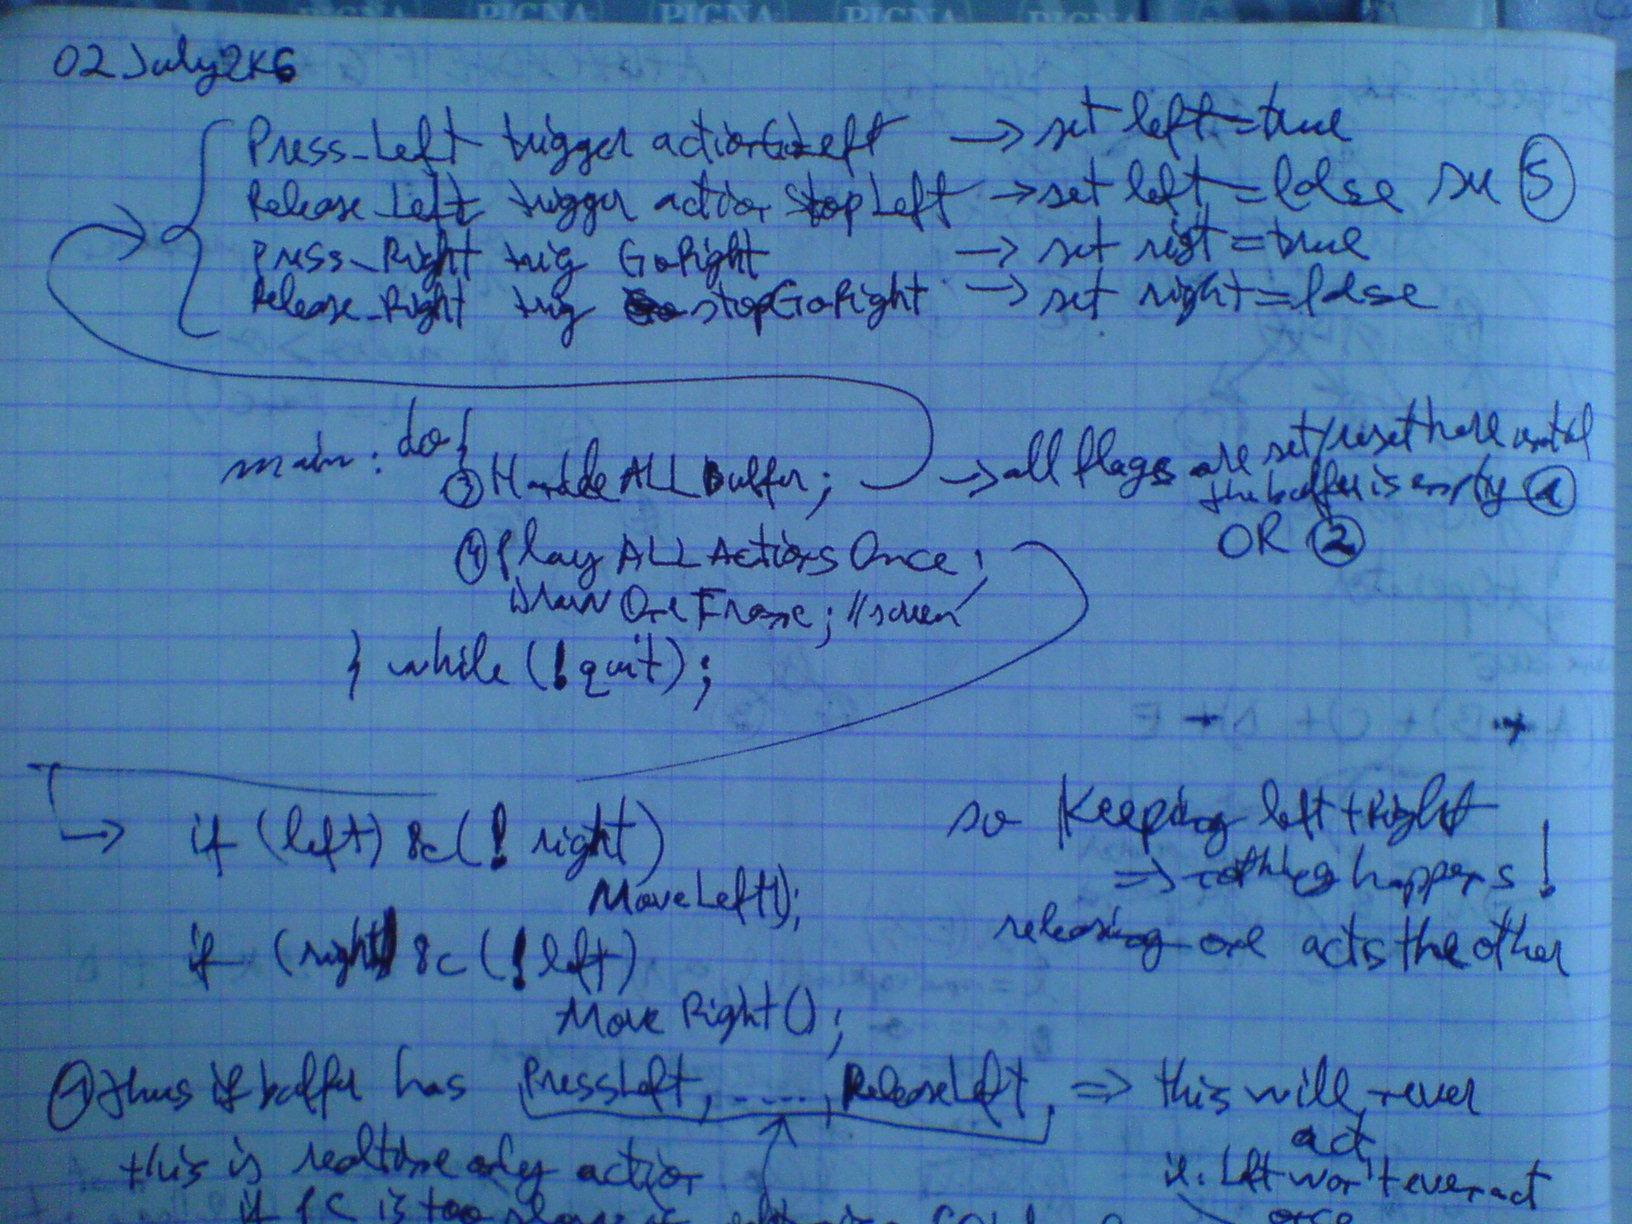 PIGNA PIGNA PIGNA PIGNA PIGNA
02 July 2K6
Press_Left trigger action GoLeft → set left = true
Release_Left trigger action StopLeft → set left = false see 5
Press_Right trig GoRight → set right = true
Release_Right trig stopGoRight → set right = false
main: do {
3 Handle ALL Buffer; → all flags are set/reset here until
the buffer is empty 1
OR 2
4 Play ALL Actions Once;
Draw One Frame; // screen
} while (!quit);
if (left) & (! right)
MoveLeft();
if (right) & (! left)
Move Right();
so Keeping left + Right
⇒ nothing happens!
releasing one acts the other
1 thus if buffer has PressLeft, ....., ReleaseLeft, ⇒ this will never
act
this is realtime only action
ie. Left won't ever act
once
if PC is too slow